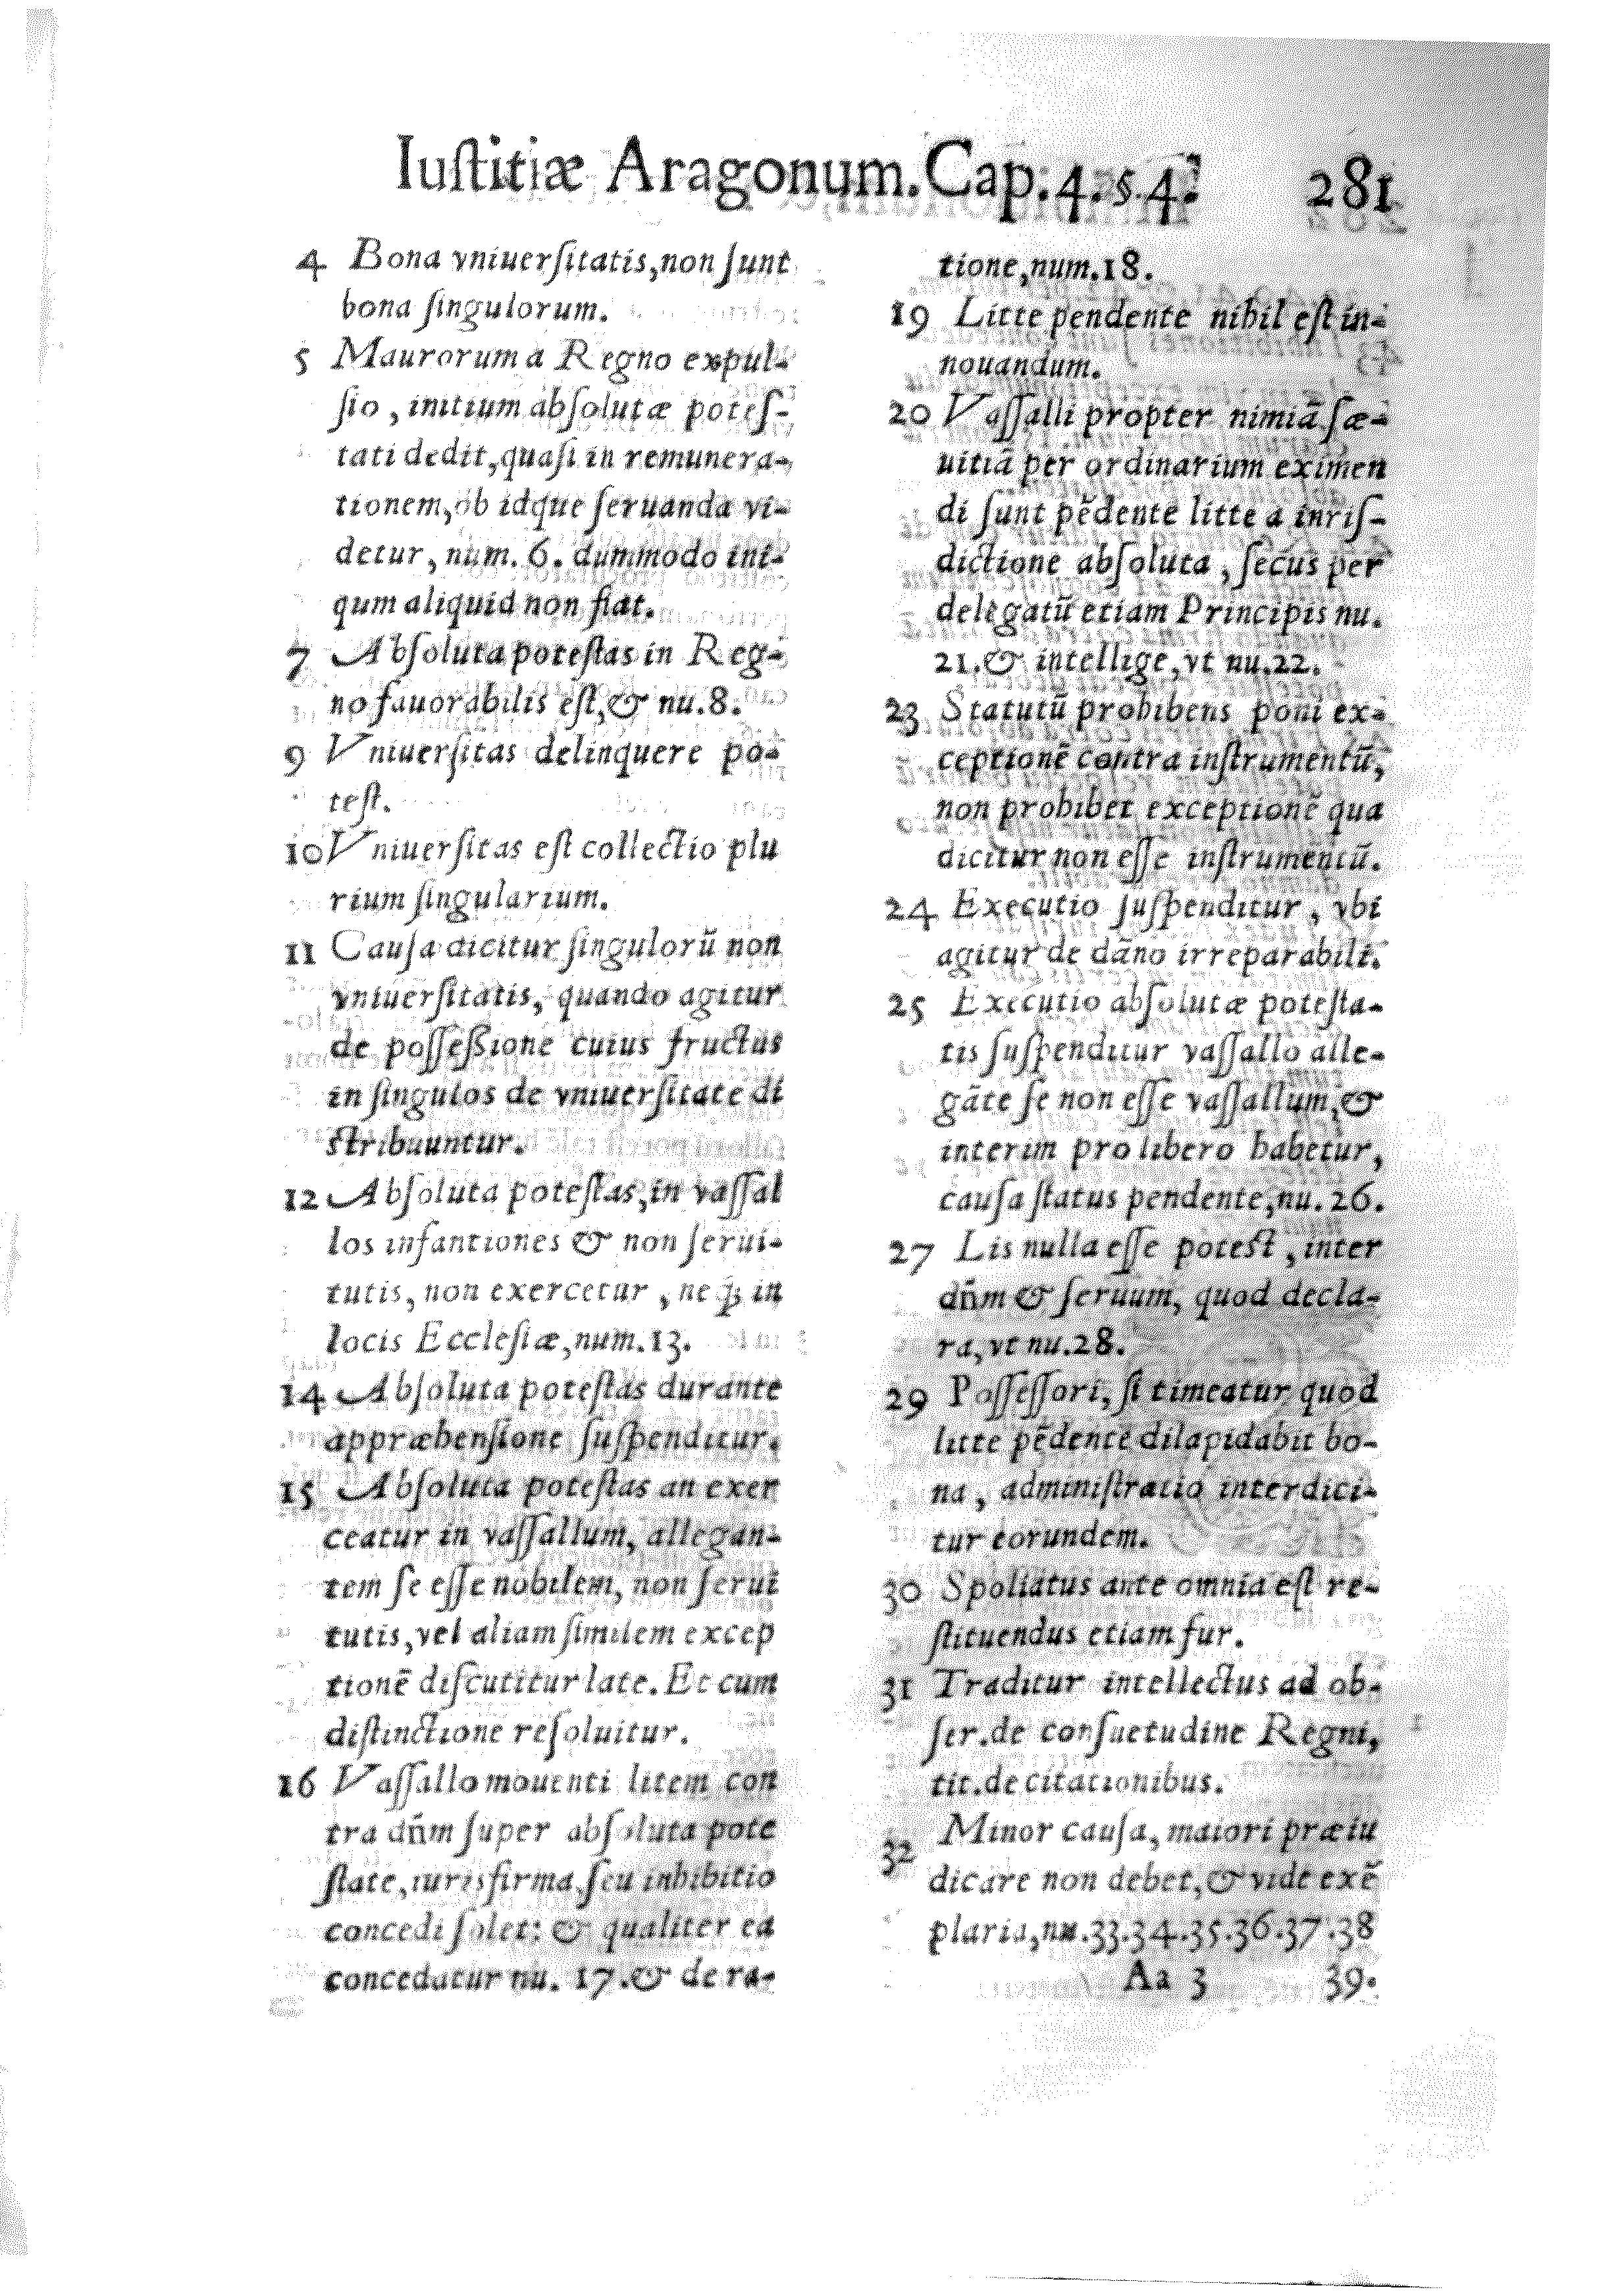 Iuſtitiæ Aragonum. Cap. 4. §. 4. 281
4 Bona vniuerſitatis, non ſunt
bona ſingulorum.
5 Maurorum a Regno expul-
ſio, initium abſolutæ poteſ-
tati dedit, quaſi in remunera-
tionem, ob idque ſeruanda vi-
detur, num. 6. dummodo ini-
qum aliquid non fiat.
7 Abſoluta poteſtas in Reg-
no fauorabilis eſt, & nu. 8.
9 Vniuerſitas delinquere po-
teſt.
10 Vniuerſitas eſt collectio plu
rium ſingularium.
11 Cauſa dicitur ſingulorū non
vniuerſitatis, quando agitur
de poſſeſſione cuius fructus
in ſingulos de vniuerſitate di
ſtribuuntur.
12 Abſoluta poteſtas, in vaſſal
los infantiones & non ſerui-
tutis, non exercetur, neq; in
locis Eccleſiæ, num. 13.
14 Abſoluta poteſtas durante
appræhenſione ſuſpenditur.
15 Abſoluta poteſtas an exer
ceatur in vaſſallum, allegan-
tem ſe eſſe nobilem, non ſerui
tutis, vel aliam ſimilem excep
tionē diſcutitur late. Et cum
diſtinctione reſoluitur.
16 Vaſſallo mouenti litem con
tra dñm ſuper abſoluta pote
ſtate, iurisfirma, ſeu inhibitio
concedi ſolet: & qualiter ea
concedatur nu. 17. & de ra-
tione, num. 18.
19 Litte pendente nihil eſt in-
nouandum.
20 Vaſſalli propter nimiā ſæ-
uitiā per ordinarium eximen
di ſunt pēdente litte a iuriſ-
dictione abſoluta, ſecus per
delegatū etiam Principis nu.
21. & intellige, vt nu. 22.
23 Statutū prohibens poni ex-
ceptionē contra inſtrumentū,
non prohibet exceptionē qua
dicitur non eſſe inſtrumentū.
24 Executio ſuſpenditur, vbi
agitur de dāno irreparabili.
25 Executio abſolutæ poteſta-
tis ſuſpenditur vaſſallo alle-
gāte ſe non eſſe vaſſallum, &
interim pro libero habetur,
cauſa ſtatus pendente, nu. 26.
27 Lis nulla eſſe poteſt, inter
dñm & ſeruum, quod decla-
ra, vt nu. 28.
29 Poſſeſſori, ſi timeatur quod
litte pēdente dilapidabit bo-
na, adminiſtratio interdici-
tur eorundem.
30 Spoliatus ante omnia eſt re-
ſtituendus etiam fur.
31 Traditur intellectus ad ob-
ſer. de conſuetudine Regni,
tit. de citationibus.
32 Minor cauſa, maiori præiu
dicare non debet, & vide exē
plaria, nu. 33. 34. 35. 36. 37. 38
Aa 3 39.